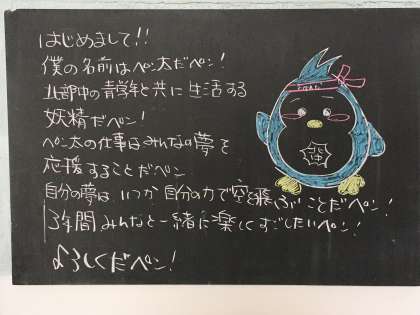 はじめまして!!
僕の名前はペン太だペン!
北部中の青学年と共に生活する
妖精だペン!
ペン太の仕事はみんなの夢を
応援することだペン
自分の夢は いつか 自分の力で空を飛ぶことだペン!
3年間 みんなと一緒に楽しくすごしたいペン!
よろしくだペン!